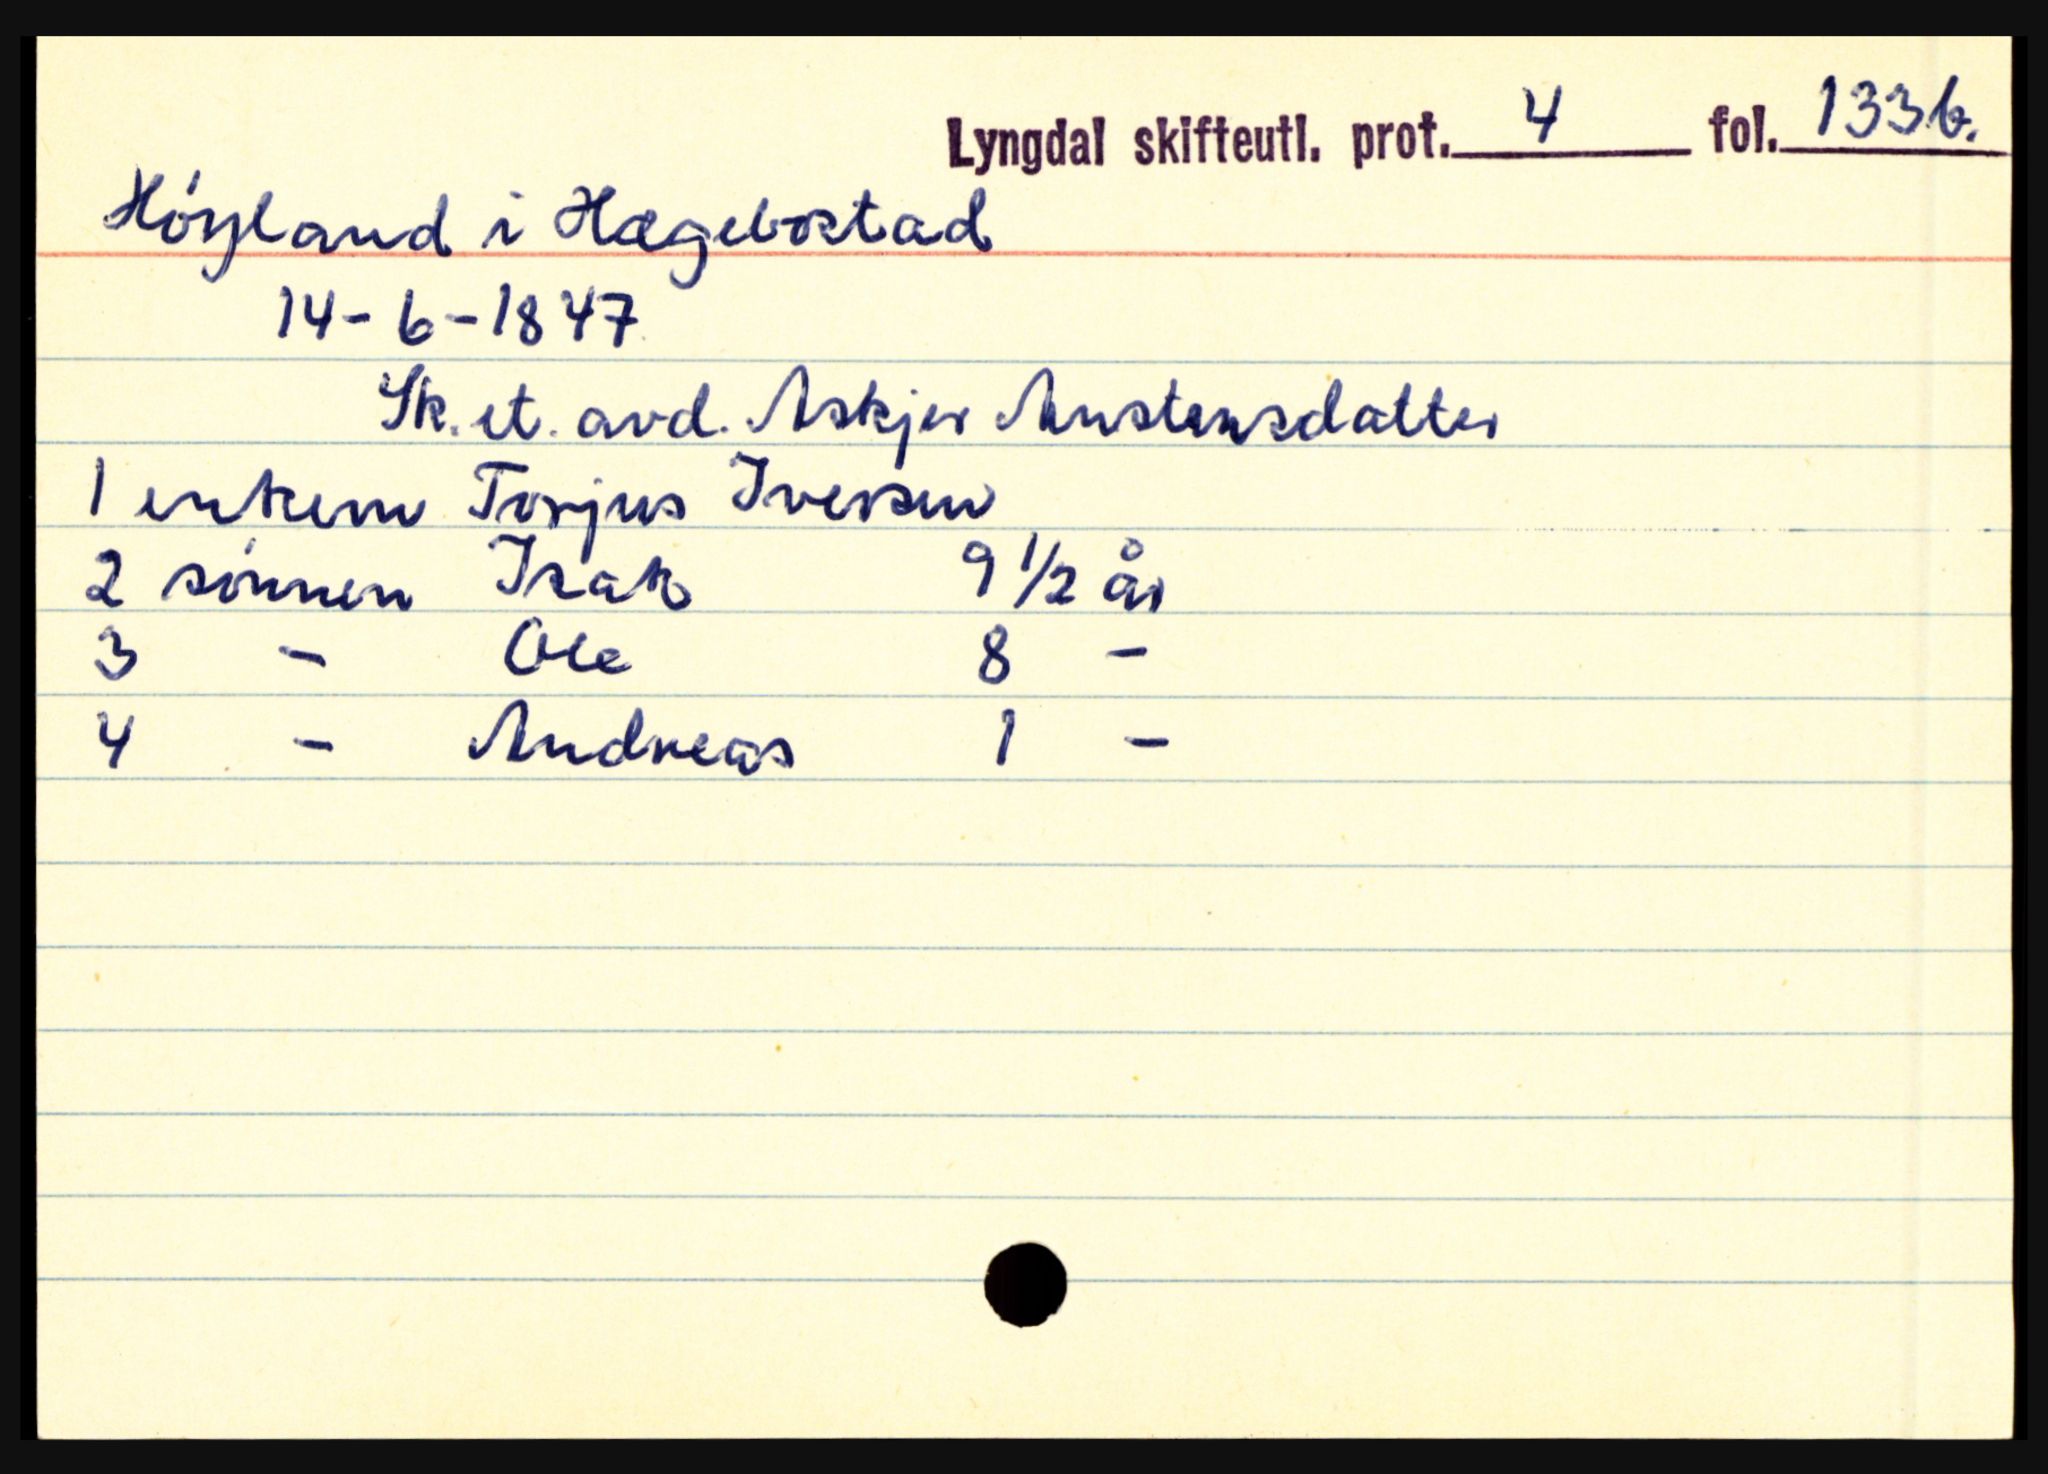 Lyngdal skifteutl. prot. 4 fol. 133b.
Höyland i Hægebostad
14-6-1847
Sk. et. avd. Askjer Austensdatter
1 enkem Torjus Iversen
2 sönnen Isak 9 1/2 år
3 - Ole 8 -
4 - Andreas 1 -